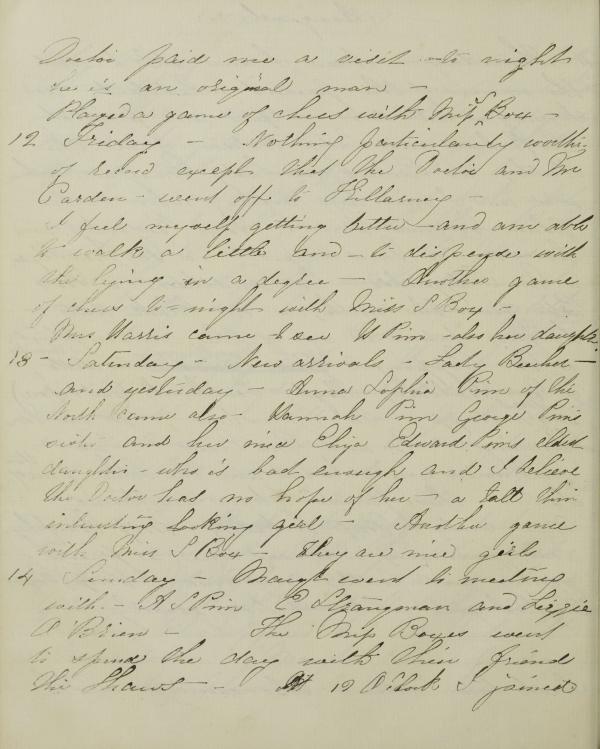 Doctor paid me a visit to night
he is an original man –
Played a game of chess with Miss S Box –
12 Friday – Nothing particularly worthy
of record except that the Doctor and Mr
Carden – went off to Killarney –
I feel myself getting better – and am able
to walk a little and – to dispense with
the lying in a degree – Another game
of chess to-night with Miss S Box –
Mrs Harris came to see S Pim – also her daughter.
13 – Saturday – New arrivals – Lady Beecher –
and yesterday – Anna Sophia Pim of the
North came also – Hannah Pim George Pims
sister and her niece Eliza Edward Pims eldest
daughter – who is bad enough and I believe
the Doctor has no hope of her – a tall thin
interesting looking girl – Another game
with Miss S Box – they are nice girls
14 Sunday – Margt went to meeting
with – A S Pim E Strangman and Lizzie
O Brien – The Miss Boxes went
to spend the day with their friend
the Shaws – At 12 O'Clock I joined